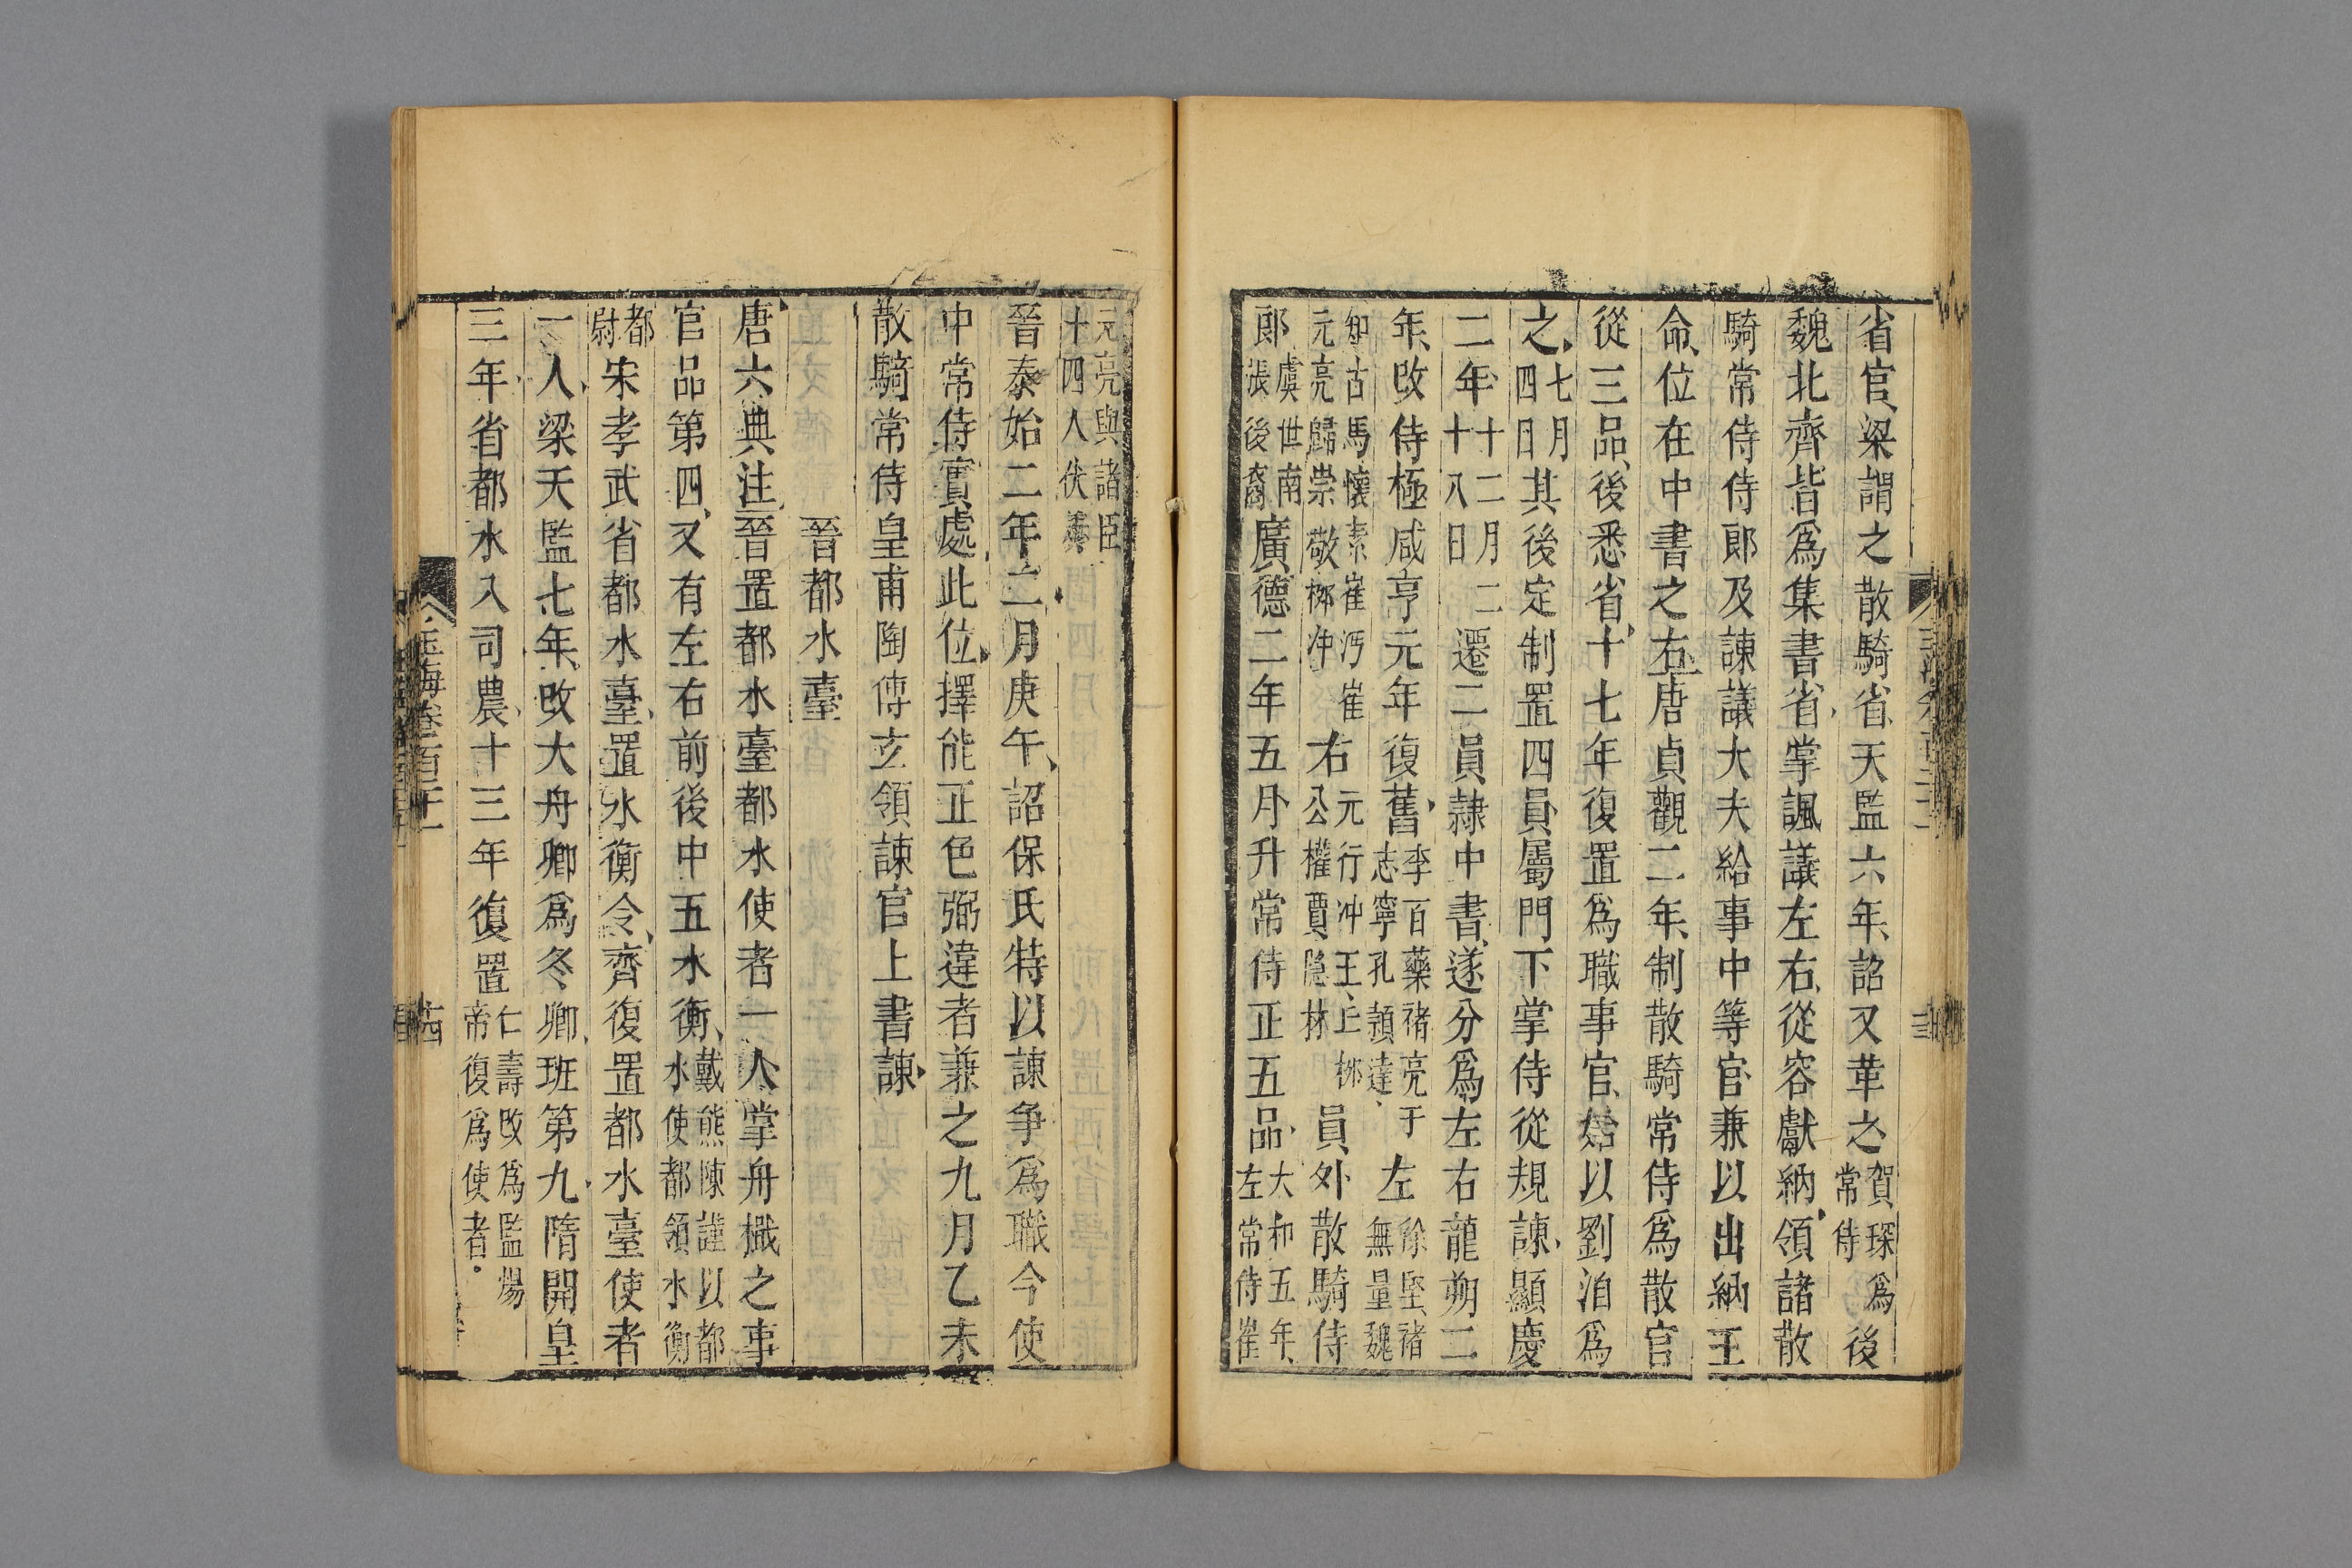 省官梁謂之散騎省天監六年詔又革之賀琛爲常侍後
魏北齊皆爲集書省掌諷議左右從容獻納領諸散
騎常侍侍郎及諫議大夫給事中等官兼以出納王
命位在中書之右唐貞觀二年制散騎常侍爲散官
從三品後悉省十七年復置爲職事官始以劉洎爲
之七月四日其後定制置四員屬門下掌侍從規諫顯慶
二年十二月二十八日遷二員隷中書遂分爲左右龍朔二
年改侍極咸亨元年復舊李百藥褚亮于志寧孔穎達左徐堅褚無量魏
知古馬懷素崔沔崔元亮歸崇敬柳冲右元行冲王上柳公權賈隱林員外散騎侍
郎虞世南張後裔廣德二年五月升常侍正五品大和五年左常侍崔
元亮與諸臣十四人伏奏
晉泰始二年二月庚午詔保氏特以諫爭爲職今使
中常侍實處此位擇能正色弼違者兼之九月乙未
散騎常侍皇甫陶傅玄領諫官上書諫
晉都水臺
唐六典注晉置都水臺都水使者一人掌舟檝之事
官品第四又有左右前後中五水衡戴熊陳謹以都水使都領水衡
都尉宋孝武省都水臺置水衡令齊復置都水臺使者
一人梁天監七年改大舟卿爲冬卿班第九隋開皇
三年省都水入司農十三年復置仁壽改爲監煬帝復爲使者
玉海卷百二十一
十四